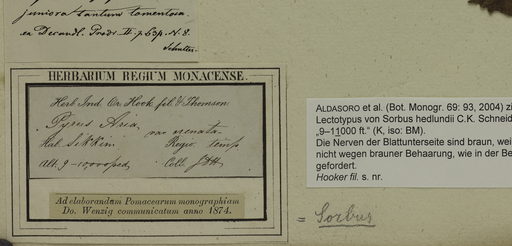 juniora tantum tomentosa
ex Decandl. Prodr. II. p. 636. N. 8.
Schultes.
HERBARIUM REGIUM MONACENSE.
Herb. Ind. Or. Hook. fil. & Thomson.
Pyrus Aria, var
Hab. Sikkim Regio temp.
Alt. 9-10,000 ped. Coll. J.D.H.
Ad elaborandam Pomacearum monographiam
Do. Wenzig communicatum anno 1874.
= Sorbus
ALDASORO et al. (Bot. Monogr. 69: 93, 2004) zi
Lectotypus von Sorbus hedlundii C.K. Schneid
„9–11000 ft.“ (K, iso: BM).
Die Nerven der Blattunterseite sind braun, wei
nicht wegen brauner Behaarung, wie in der Be
gefordert.
Hooker fil. s. nr.